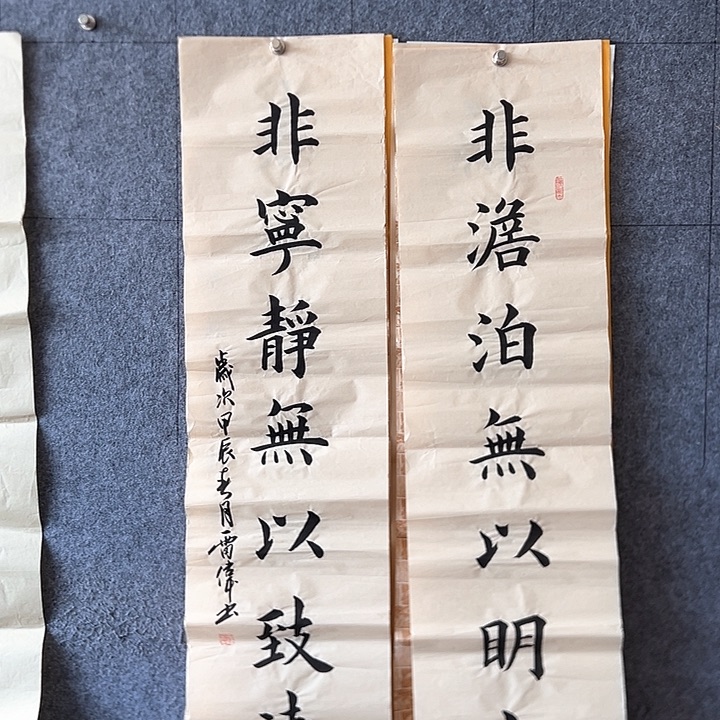 非澹泊無以明
非寧靜無以致
歲次甲辰春月雷偉书